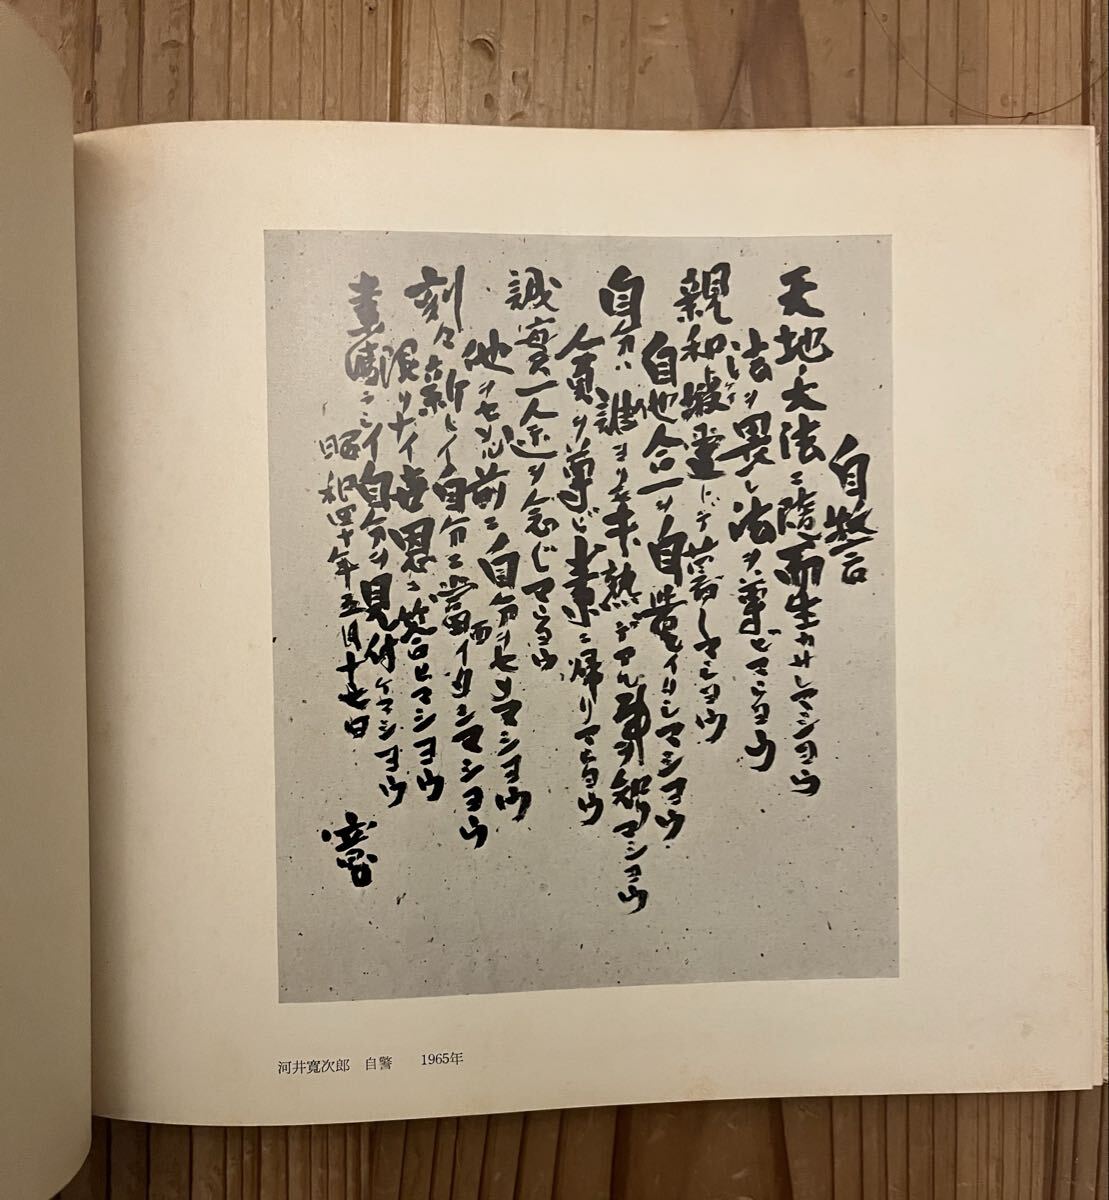 自警
天地ノ大法ニ随而生カサレマシヨウ
法ヲ畏レ法ヲ尊ビマシヨウ
親和
マシヨウ
自他合一ヲ自覚イタシマシヨウ
自分ハ誠ヨリモ未熟デアル事ヲ知リマシヨウ
人貧ヲ尊ビ素ニ帰リマシヨウ
誠實一人近ヲ念ジマシヨウ
他ヲセメル前ニ自分ヲセメマシヨウ
刻々新シイ自分ニ当面イタシマシヨウ
限リナイ世恩ニ答ヒマシヨウ
素晴ラシイ自分ヲ見付ケマシヨウ
昭和四十年五月十七日
寛
河井寬次郎 自警 1965年